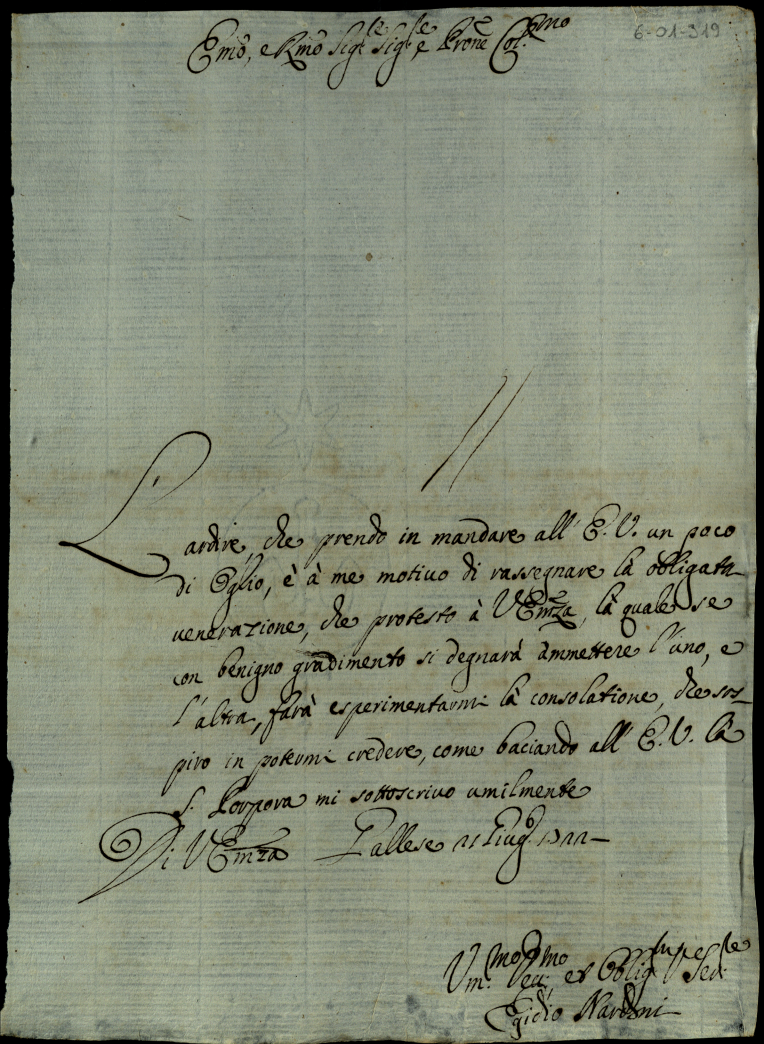 6-01-319
Emo, e Rmo Sig.re Sig.re e Prone Col.mo
L'ardire, che prendo in mandare all' E. V. un poco
di Oglio, è à me motivo di rassegnare là obbligata
venerazione, che protesto à V Emza, là quale se
con benigno gradimento si degnarà ammettere l'uno, e
l'altra, farà esperimentarmi là consolatione, che sos-
piro in potermi credere, come baciando all' E. V. là
S. Porpora mi sottoscrivo umilmente
Di V Emza Gallese Giug.
Um.mo Dev.mo, et Obblig. Ser.re
Egidio Nardini